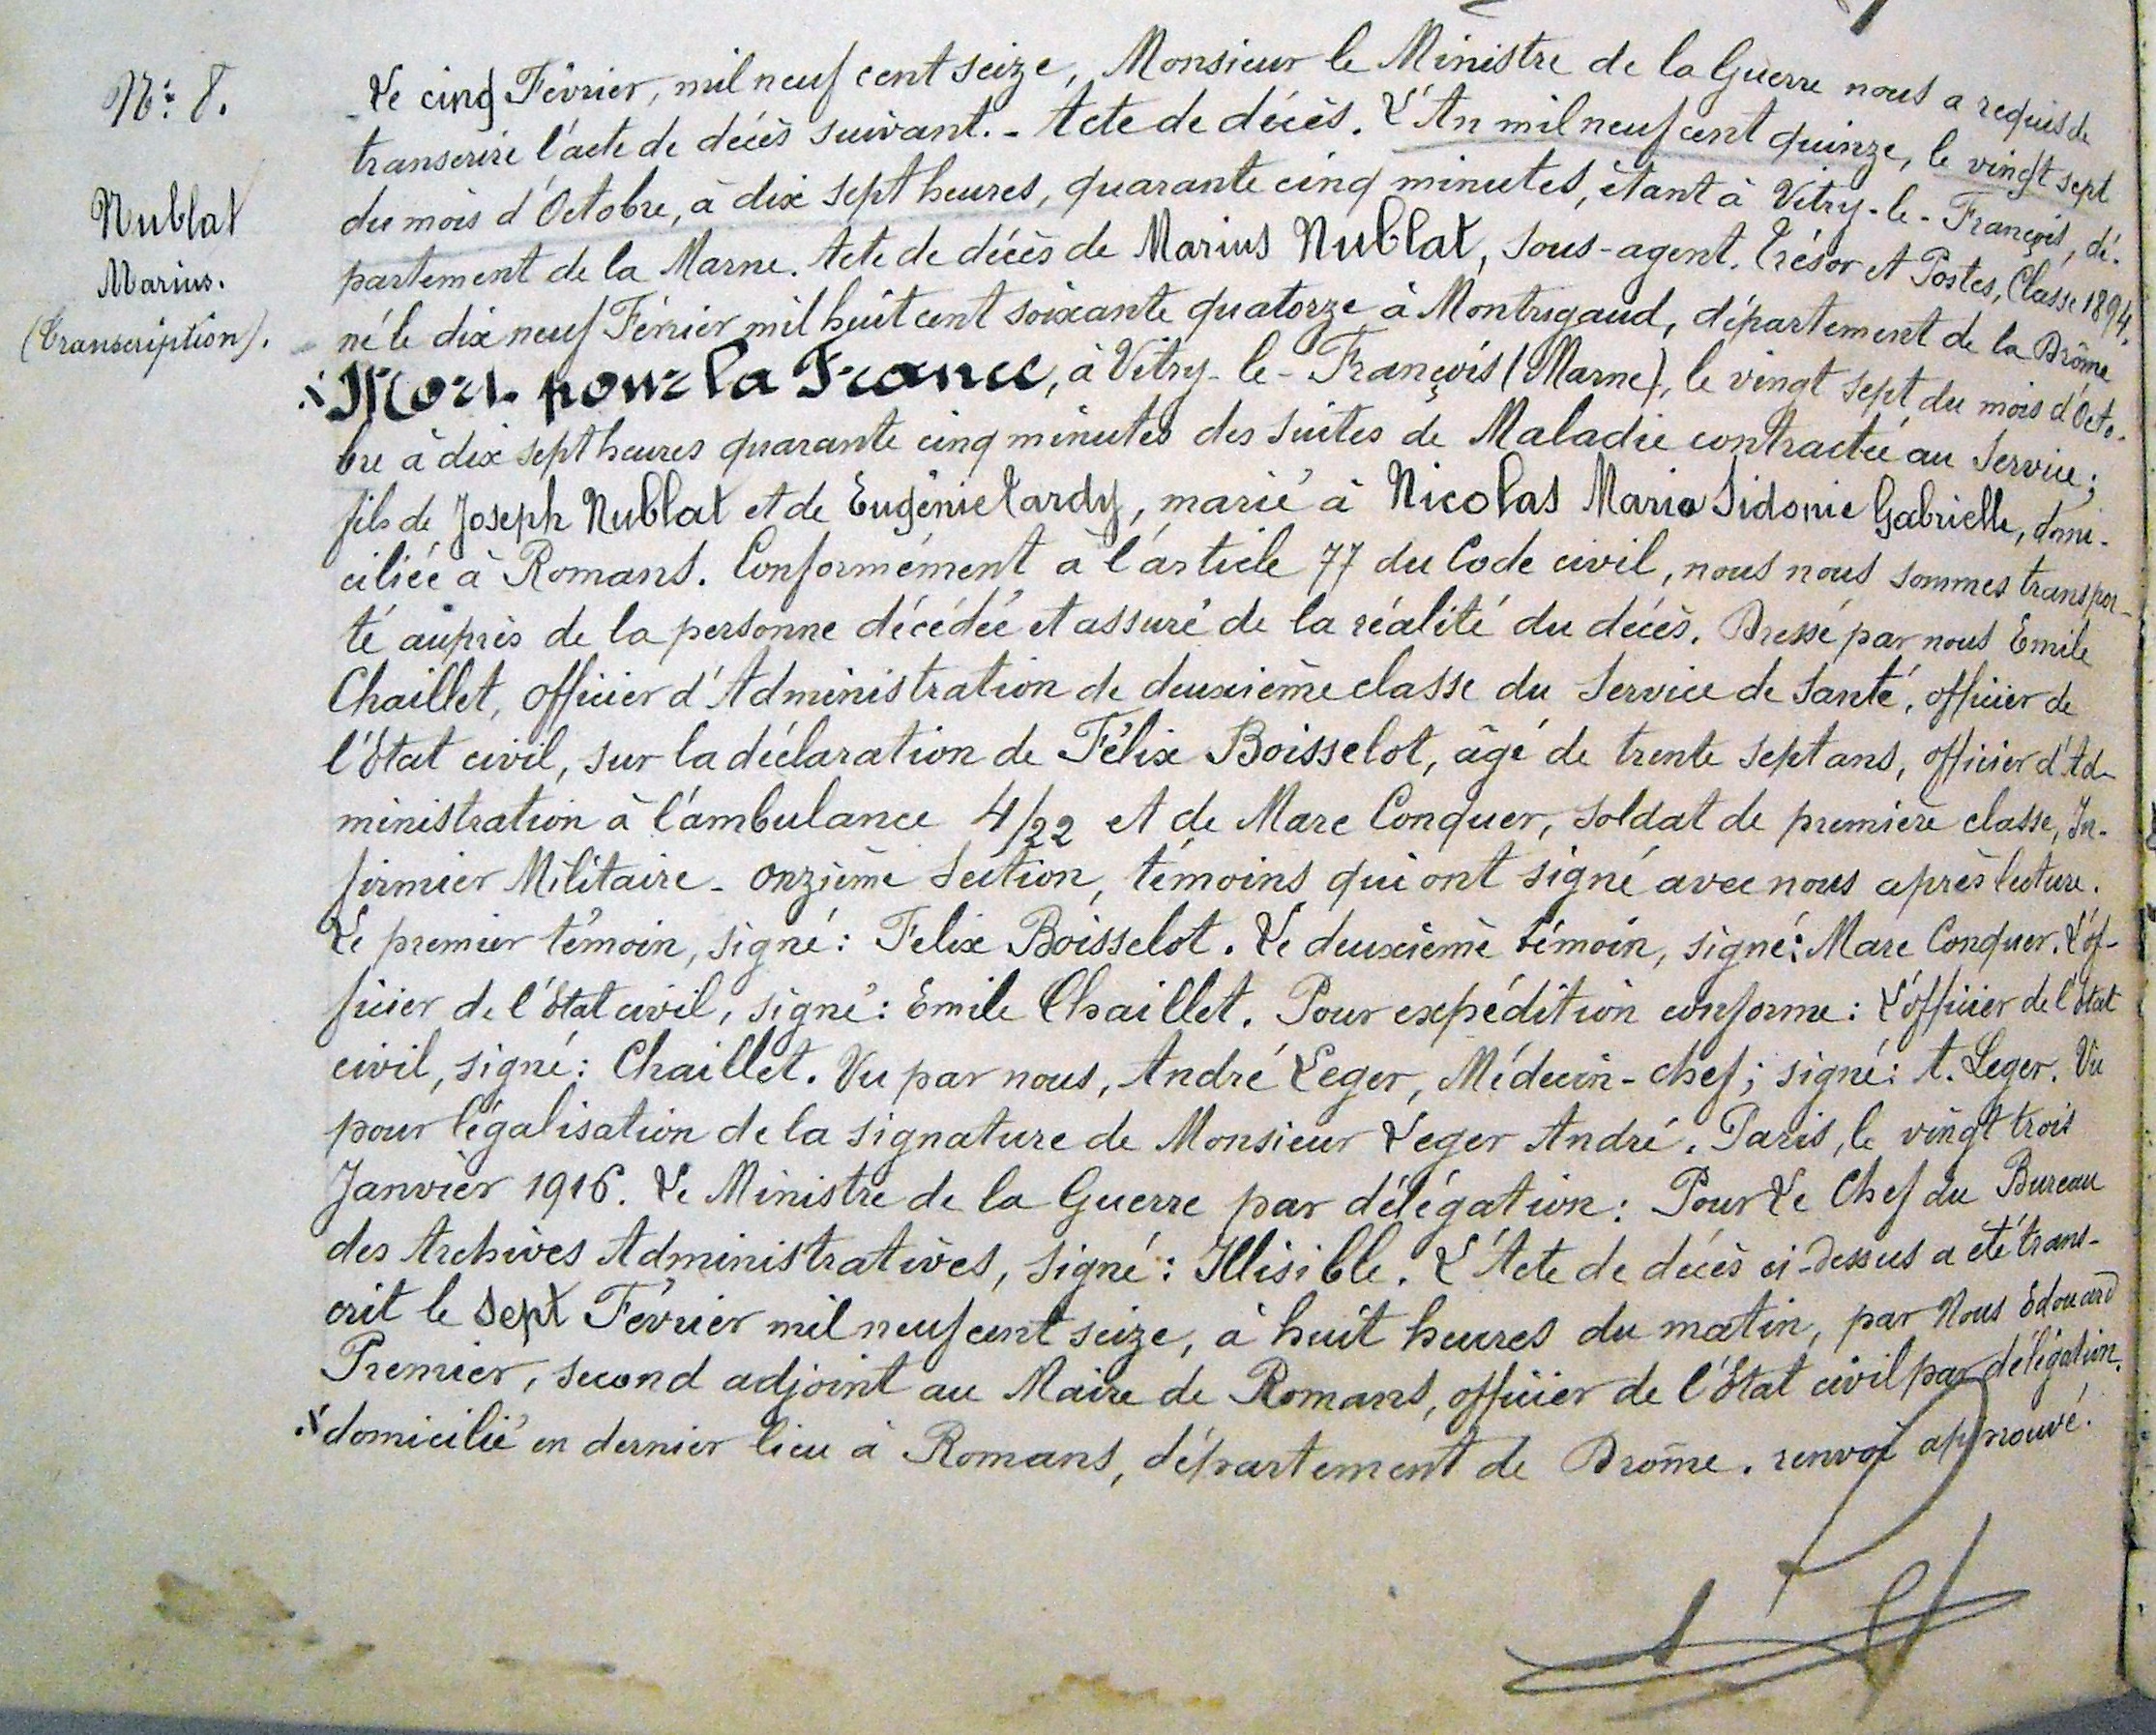 N° 8.
Nublat
Marius.
(Transcription).
Le cinq Février, mil neuf cent seize, Monsieur le Ministre de la Guerre nous a requis de
transcrire l'acte de décès suivant. - Acte de décès. L'An mil neuf cent quinze, le vingt sept
du mois d'Octobre, à dix sept heures, quarante cinq minutes, étant à Vitry-le-François, dé-
partement de la Marne. Acte de décès de Marius Nublat, sous-agent. Trésor et Postes, Classe 1894,
né le dix neuf Février mil huit cent soixante quatorze à Montrigaud, département de la Drôme
x Mort pour la France, à Vitry-le-François (Marne), le vingt sept du mois d'Octo-
bre à dix sept heures quarante cinq minutes des suites de Maladie contractée au Service;
fils de Joseph Nublat et de Eugénie Tardy, marié à Nicolas Marie Sidonie Gabrielle, domi-
ciliée à Romans. Conformément à l'article 77 du Code civil, nous nous sommes transpor-
té auprès de la personne décédée et assuré de la réalité du décès. Dressé par nous Emile
Chaillet, officier d'Administration de deuxième classe du Service de Santé, officier de
l'Etat civil, sur la déclaration de Félix Boisselot, âgé de trente sept ans, officier d'Ad-
ministration à l'ambulance 4/22 et de Marc Conquer, soldat de première classe, In-
firmier Militaire - onzième Section, témoins qui ont signé avec nous après lecture.
Le premier témoin, signé: Felix Boisselot. Le deuxième témoin, signé: Marc Conquer. L'of-
ficier de l'Etat civil, signé: Emile Chaillet. Pour expédition conforme: L'officier de l'Etat
civil, signé: Chaillet. Vu par nous, André Leger, Médecin-chef; signé: A. Leger. Vu
pour légalisation de la signature de Monsieur Leger André. Paris, le vingt trois
Janvier 1916. Le Ministre de la Guerre par délégation: Pour Le Chef du Bureau
des Archives Administratives, signé: Illisible. L'Acte de décès ci-dessus a été trans-
crit le sept Février mil neuf cent seize, à huit heures du matin, par Nous Edouard
Premier, second adjoint au Maire de Romans, officier de l'Etat civil par délégation.
x domicilié en dernier lieu à Romans, département de Drôme. renvoi approuvé.